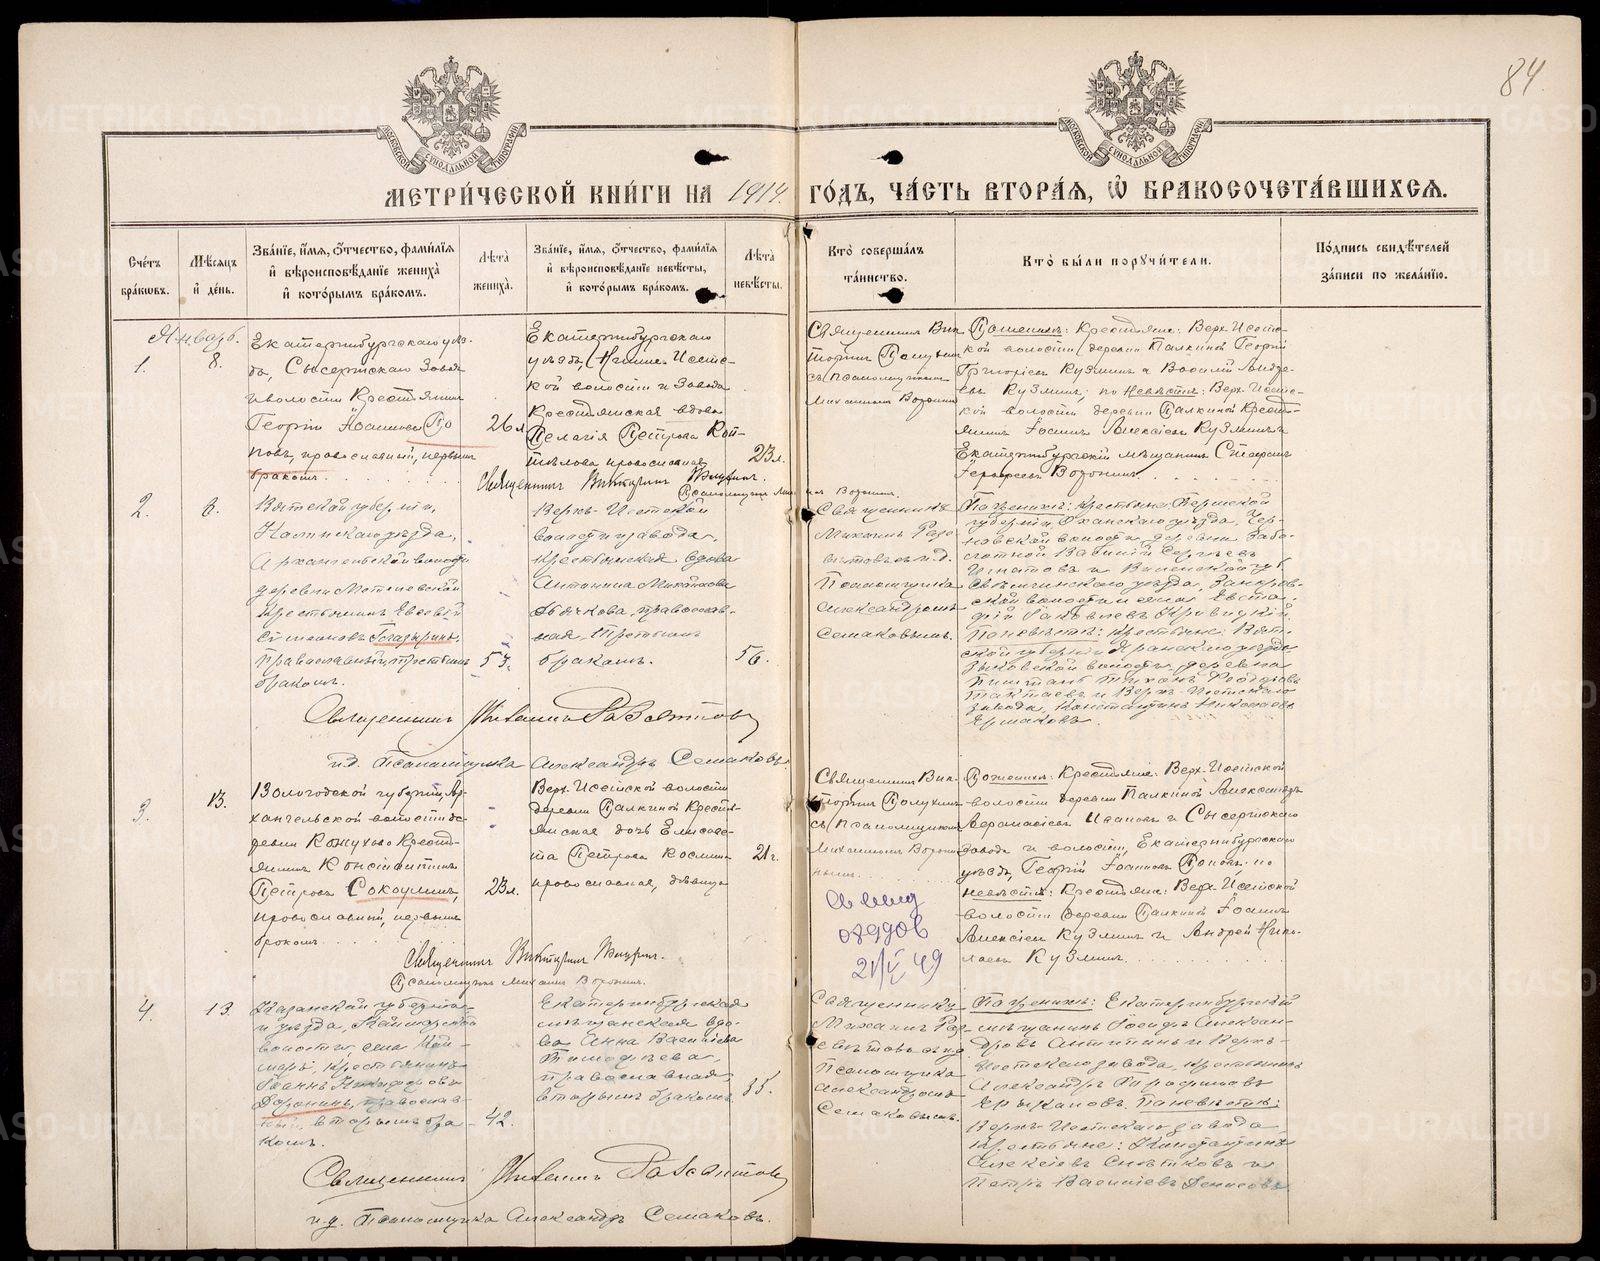 84.
МОСКОВСКОЙ СѴНОДАЛЬНОЙ ТИПОГРАФІИ
МОСКОВСКОЙ СѴНОДАЛЬНОЙ ТИПОГРАФІИ
МЕТРИ́ЧЕСКОЙ КНИ́ГИ НА 1914. ГО́ДЪ, ЧА́СТЬ ВТОРА́Я, Ѽ БРАКОСОЧЕТА́ВШИХСЯ.
Сче́тъ бра́кωвъ.
Мѣ́сяцъ и҆ де́нь.
Зва́нїе, и҆́мя, ѻ҆́тчество, фами́лїя и҆ вѣроисповѣ́данїе жениха̀ и҆ кото́рымъ бра́комъ.
Лѣ́та жениха̀.
Зва́нїе, и҆́мя, ѻ҆́тчество, фами́лїя и҆ вѣроисповѣ́данїе невѣ́сты, и҆ кото́рымъ бра́комъ.
Лѣ́та невѣ́сты.
Кто̀ соверша́лъ та́инство.
Кто̀ бы́ли порꙋчи́тели.
По́дпись свидѣ́телей за́писи по жела́нїю.
Январь.
1.
8.
Екатеринбургскаго уѣз-
да, Сысертскаго Завода
и волости Крестьянин
Георгій Іоанновъ По
повъ, православный, первымъ
бракомъ.
26 л
Екатеринбургскаго
уѣзда, Нижне-Исетс-
кой волости и Завода
Крестьянская вдова
Пелагія Петрова Коп-
тѣлова православная
23 л.
Священникъ Викторин
Псаломщикъ Михаилъ Воронин.
Священник Вик
торин
съ псаломщикомъ
Михаилом Ворониным
По женихѣ: Крестьяне: Верх-Исетс-
кой волости деревни Палкиной Георгій
Григоріев Кузмин и Василій Андре-
ев Кузмин; по невѣстѣ: Верх-Исетс-
кой волости деревни Палкиной Кресть-
янинъ Іоаннъ Алексіев Кузминъ и
Екатеринбургскій мѣщанинъ Стефан
Воронин.
2.
8.
Вятской губерніи,
уѣзда,
Архангельской волости
деревни
крестьянинъ Евсевій
Симеоновъ
Православный, третьимъ
бракомъ.
57.
Верхъ-Исетской
волости и завода,
крестьянская вдова
Антонина Михайлова
Дьячкова, православ-
ная, третьимъ
бракомъ.
56.
Священникъ
Михаилъ Разс
вѣтовъ съ и.д.
Псаломщика
Александромъ
Семаковымъ.
По женихѣ: крестьяне: Пермской
губерніи, Оханскаго уѣзда, Чер-
новской волости, деревни Забо-
лотной Василій Сергѣевъ
Игнатовъ и Виленской губ.
Свѣнцянскаго уѣзда,
ской волости и села Евста-
фій Яковлевъ
По невѣстѣ: крестьяне: Вят-
ской губерніи Яранскаго уѣзда
волости, деревни
Тихонъ
и Верхъ-Исетскаго
завода, Константинъ Николаевъ
Ермаковъ.
Священникъ Михаилъ Разсвѣтовъ
и.д. Псаломщика Александръ Семаковъ.
3.
13.
Вологодской губерніи, Ар-
хангельской волости де-
ревни Кожухово Кресть-
янинъ Константинъ
Петровъ Сокоулин,
православный, первымъ
бракомъ.
23 л.
Верх-Исетской волости
деревни Палкиной Кресть-
янская дочь Елисаве-
та Петрова Космина
православная, дѣвица
21 г.
Священник Вик-
торин
съ псаломщиком
Михаилом Ворони-
ным.
Свѣид
21/V 49
По женихѣ: Крестьяне: Верх-Исетской
волости деревни Палкиной Александръ
Иванов и Сысертскаго
завода и волости, Екатеринбургскаго
уѣзда, Георгій Іоаннов Попов; по
невѣстѣ: Крестьяне: Верх-Исетской
волости деревни Палкиной Іоаннъ
Алексіев Кузмин и Андрей Нико-
лаев Кузмин.
Священникъ Викторин
Псаломщикъ Михаил Воронин.
4.
13.
Казанской губерніи
и уѣзда, Каймарской
волости, села Кай-
маръ, крестьянинъ
Іоаннъ Никифоровъ
Доронинъ, православ-
ный, вторымъ бра-
комъ.
42.
Екатеринбургская
мѣщанская вдо-
ва Анна Васильева
Тимофеева,
православная,
вторымъ бракомъ.
35.
Священникъ
Михаилъ Раз-
свѣтовъ съ и.д.
Псаломщика
Александромъ
Семаковымъ.
По женихѣ: Екатеринбургскій
мѣщанинъ Іосифъ Алексан-
дровъ Антипинъ и Верхъ-
Исетскаго завода, крестьянинъ
Александръ
По невѣстѣ:
Верхъ-Исетскаго завода,
крестьяне: Константинъ
Алексіевъ Снѣтковъ и
Петръ Васильевъ Денисовъ.
Священникъ Михаилъ Разсвѣтовъ
и.д. Псаломщика Александръ Семаковъ.
METRIKI.GASO-URAL.RU